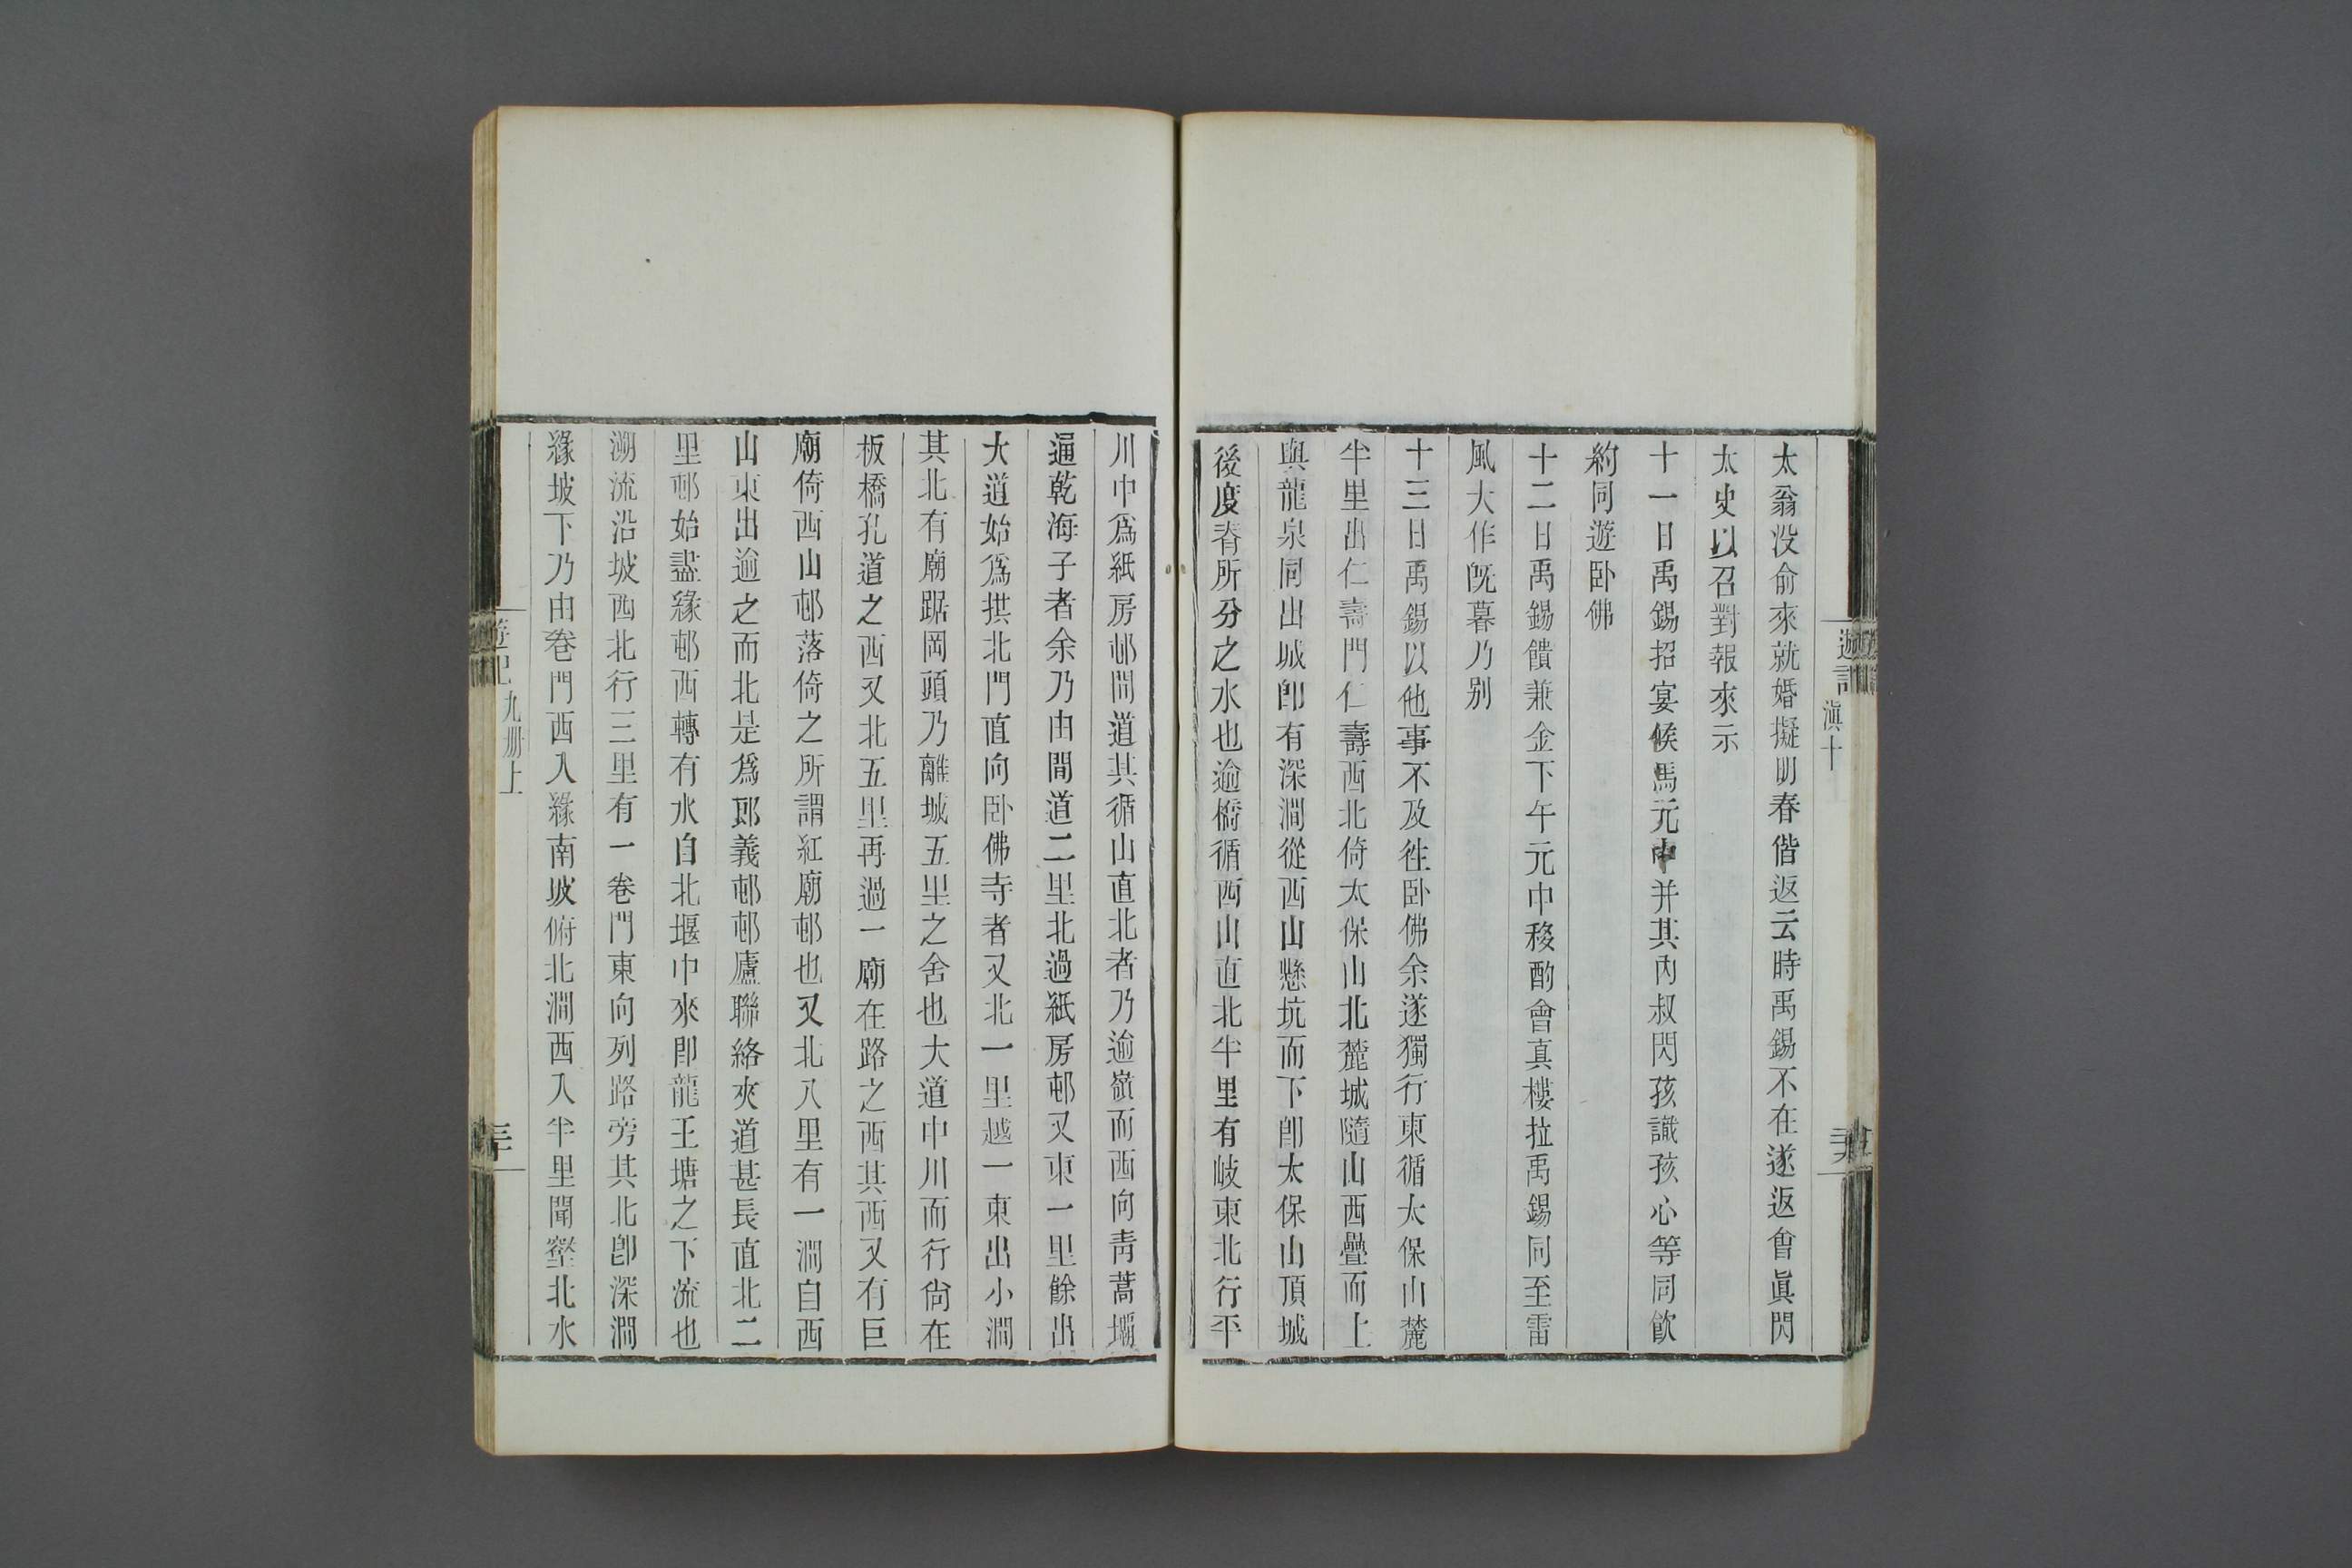 滇十
太翁没俞來就婚擬明春偕返云時禹錫不在遂返會眞閃
太史以召對報來示
十一日禹錫招宴候馬元中并其內叔閃孩識孩心等同飲
約同遊卧佛
十二日禹錫饋兼金下午元中移酌會真樓拉禹錫同至雷
風大作旣暮乃别
十三日禹錫以他事不及徃卧佛余遂獨行東循太保山麓
半里出仁壽門仁壽西北倚太保山北麓城隨山西疊而上
與龍泉同出城卽有深澗從西山懸坑而下卽太保山頂城
後度脊所分之水也逾橋循西山直北半里有岐東北行平
川中爲紙房邨間道其循山直北者乃逾嶺而西向青蒿壩
通乾海子者余乃由間道二里北過紙房邨又東一里餘出
大道始爲拱北門直向卧佛寺者又北一里越一東出小澗
其北有廟踞岡頭乃離城五里之舍也大道中川而行尙在
板橋孔道之西又北五里再過一廟在路之西其西又有巨
廟倚西山邨落倚之所謂紅廟邨也又北八里有一澗自西
山東出逾之而北是爲郎義邨邨廬聯絡夾道甚長直北二
里邨始盡緣邨西轉有水自北堰中來卽龍王塘之下流也
溯流沿坡西北行三里有一巷門東向列路旁其北卽深澗
緣坡下乃由巷門西入緣南坡俯北澗西入半里聞壑北水
遊記
九冊上
三十